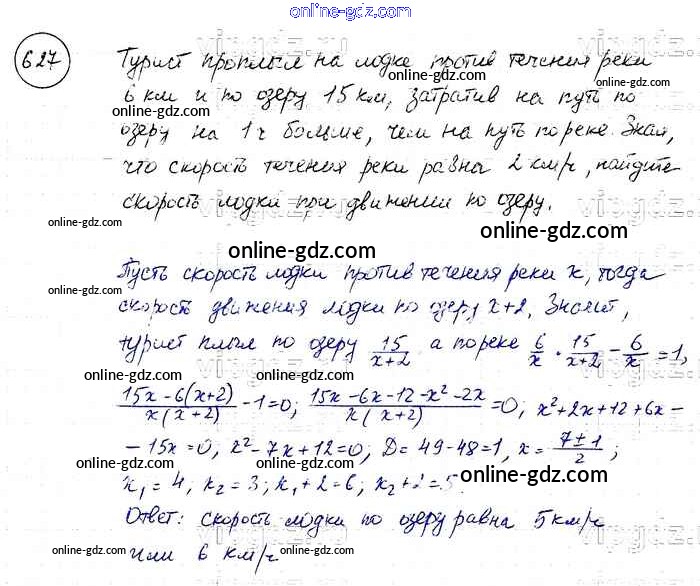 online-gdz.com
627
Турист проплыл на лодке против течения реки
online-gdz.com
6 км и по озеру 15 км, затратив на путь по
online-gdz.com
озеру на 1 ч больше, чем на путь по реке. Зная,
что скорость течения реки равна 2 км/ч, найдите
скорость лодки при движении по озеру.
online-gdz.com
online-gdz.com online-gdz.com
Пусть скорость лодки против течения реки x, тогда
online-gdz.com
скорость движения лодки по озеру x+2, Значит,
турист плыл по озеру 15/(x+2) а по реке 6/x . 15/(x+2) - 6/x = 1,
online-gdz.com online-gdz.com
(15x - 6(x+2))/(x(x+2)) - 1 = 0; (15x - 6x - 12 - x² - 2x)/(x(x+2)) = 0, x² + 2x + 12 + 6x -
- 15x = 0, x² - 7x + 12 = 0, D = 49 - 48 = 1, x = (7 ± 1)/2;
online-gdz.com online-gdz.com
x₁ = 4, x₂ = 3; x₁ + 2 = 6; x₂ + 2 = 5.
Ответ: скорость лодки по озеру равна 5 км/ч
online-gdz.com
или 6 км/ч
online-gdz.com online-gdz.com online-gdz.com